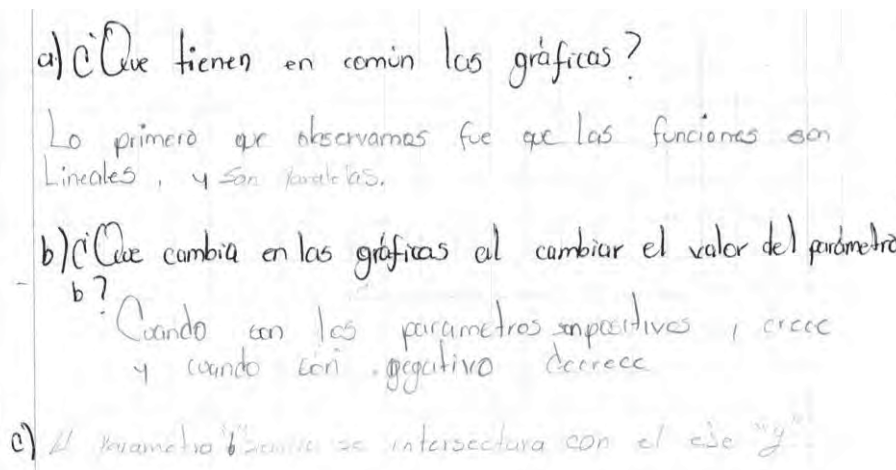 a) ¿Que tienen en común las gráficas?
Lo primero que observamos fue que las funciones son
Lineales, y son paralelas.
b) ¿Que cambia en las gráficas al cambiar el valor del parámetro
b?
Cuando son los parametros son positivos, crece
y cuando son negativo decrece
c) El parametro "b" se intersectara con el eje "y"